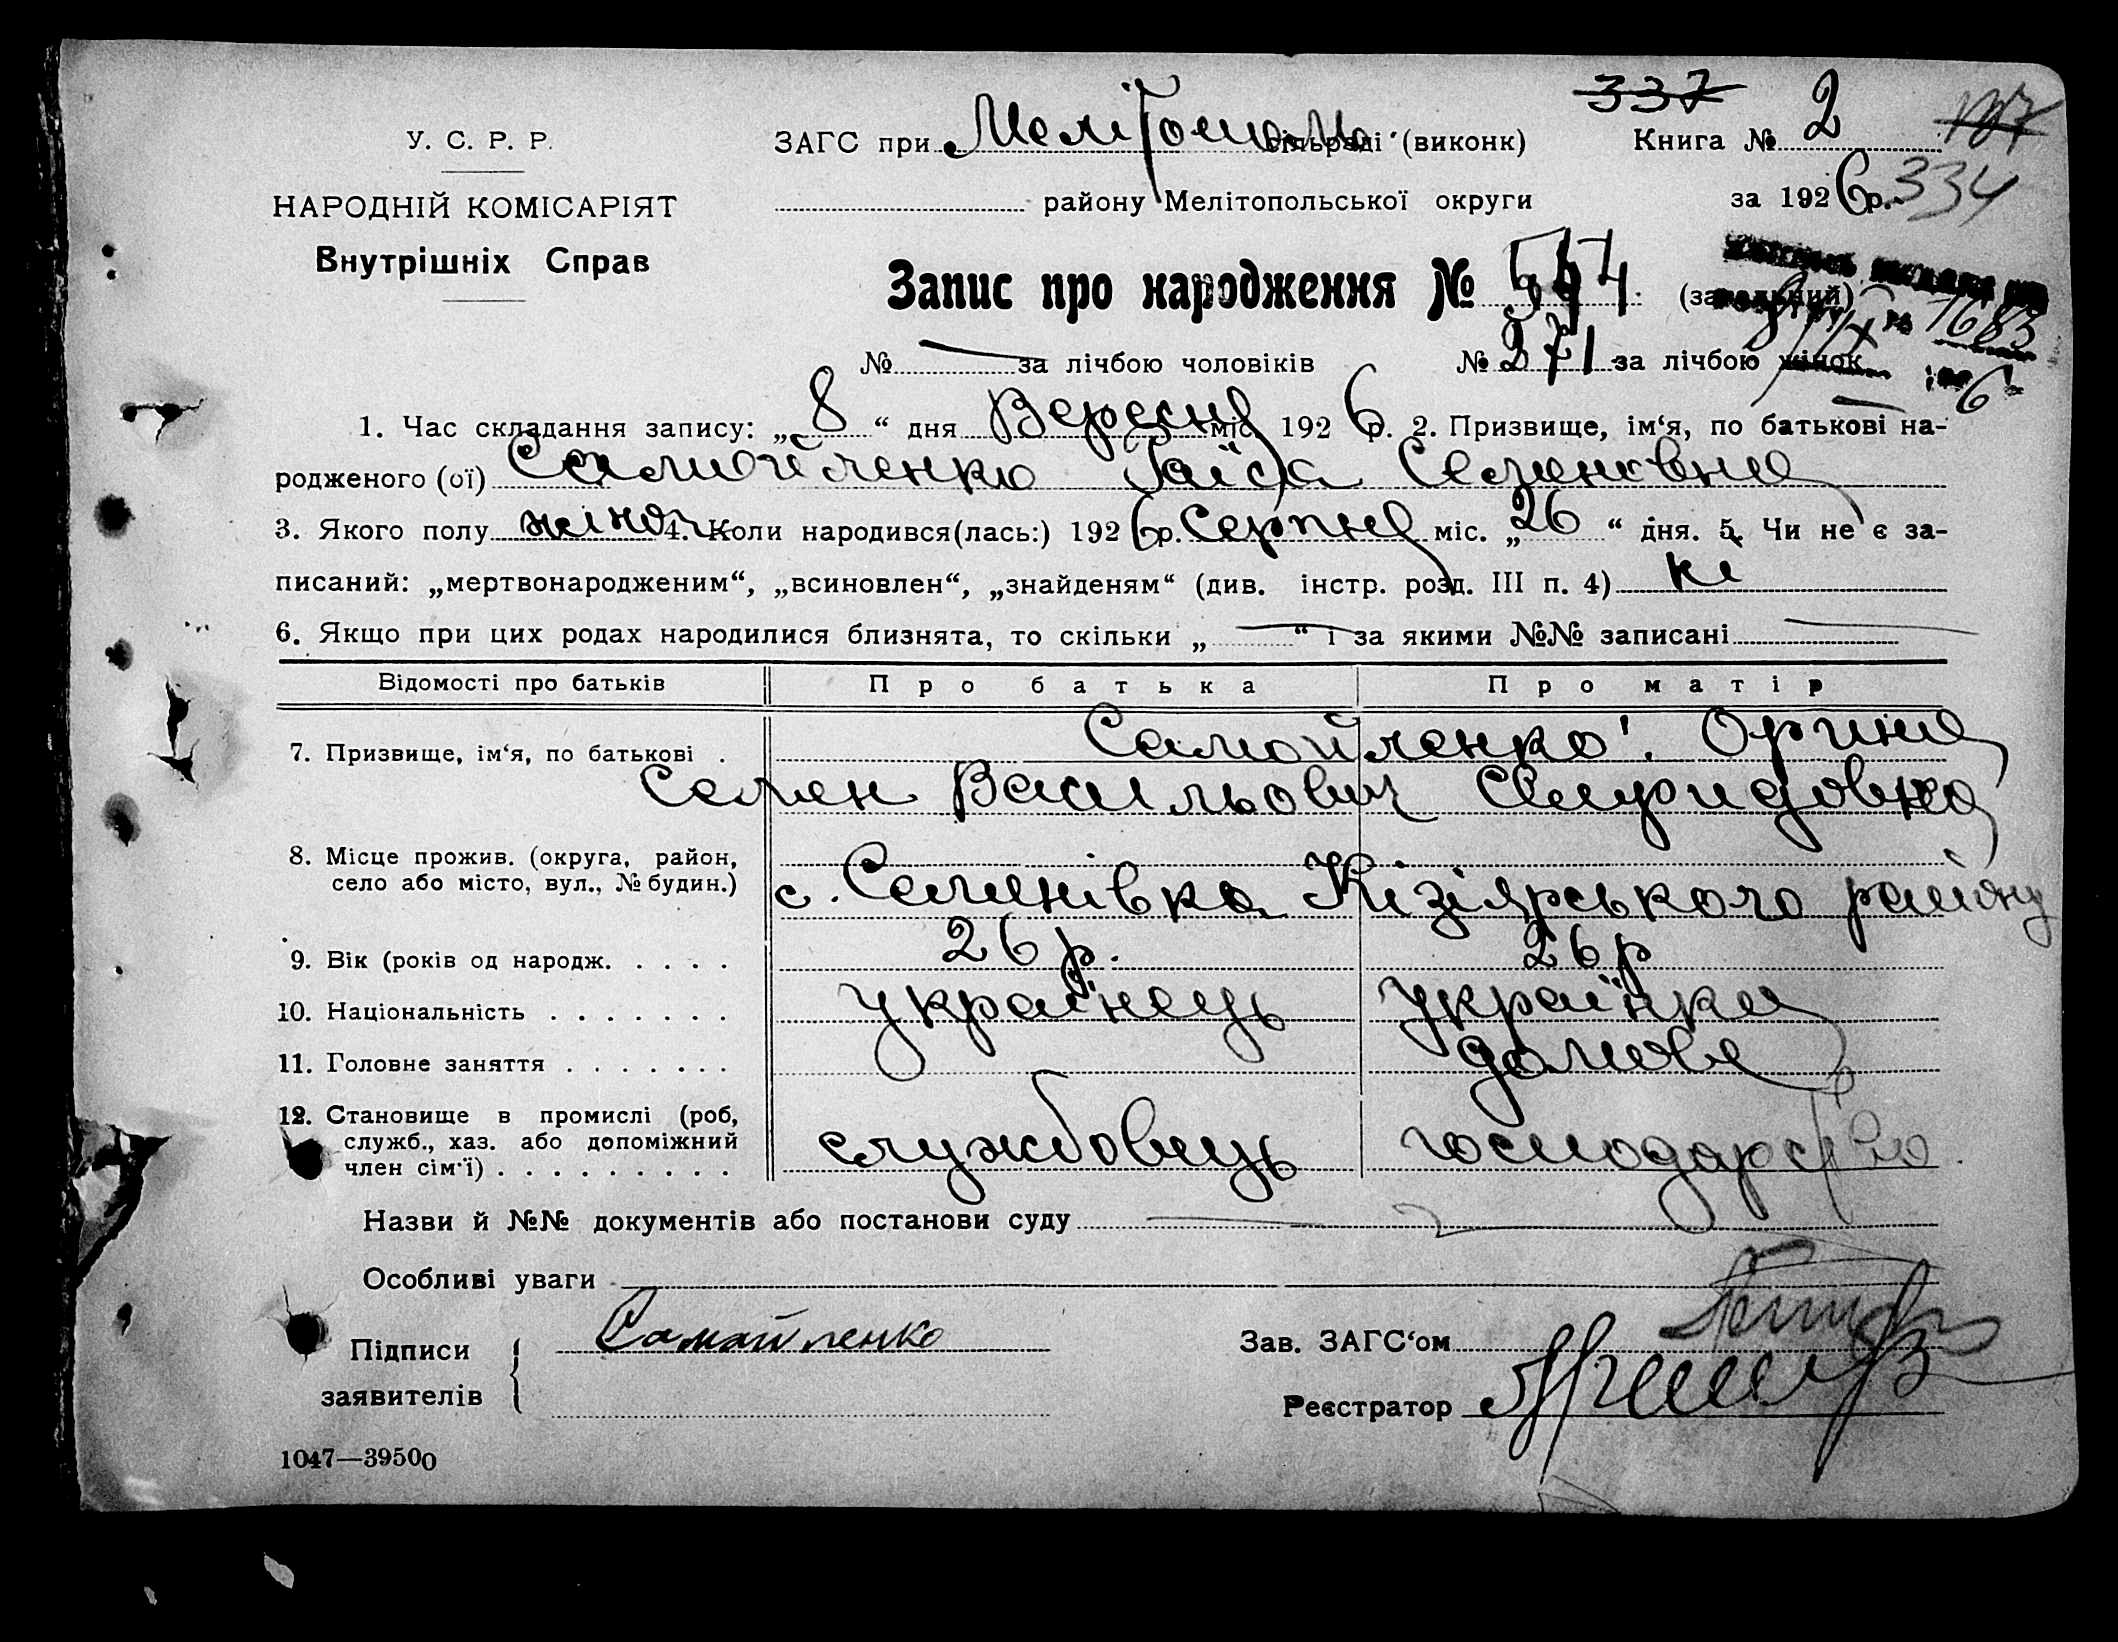 337
У. С. Р. Р. ЗАГС при Мелітополь сільраді (виконк) Книга № 2 127
НАРОДНІЙ КОМІСАРІЯТ району Мелітопольської округи за 1926 р. 334
Внутрішніх Справ
Запис про народження № 544 (загальний)
№ — за лічбою чоловіків № 271 за лічбою жінок
8/IX № 1683
6
1. Час складання запису: „8“ дня Вересня міс. 1926 р. 2. Призвище, ім‘я, по батькові на-
родженого (ої) Самойленко Раїса Семенівна
3. Якого полу жіноч 4. Коли народився(лась:) 1926 р. Серпня міс. „26“ дня. 5. Чи не є за-
писаний: „мертвонародженим“, „всиновлен“, „знайденям“ (див. інстр. розд. III п. 4) ні
6. Якщо при цих родах народилися близнята, то скільки „—“ і за якими №№ записані —
Відомості про батьків Про батька Про матір
7. Призвище, ім‘я, по батькові . Самойленко Орина
Семен Васильович Свиридовна
8. Місце прожив. (округа, район,
село або місто, вул., № будин.) с. Семенівка Кізіярського району
9. Вік (років од народж. . . . . 26 р. 26 р
10. Національність . . . . . . . українець українка
11. Головне заняття . . . . . . . домове
12. Становище в промислі (роб,
служб., хаз. або допоміжний службовець господарство
член сім‘ї) . . . . . . . . .
Назви й №№ документів або постанови суду —
Особливі уваги
Підписи Самайленко Зав. ЗАГС‘ом
заявителів Реєстратор
1047—39500